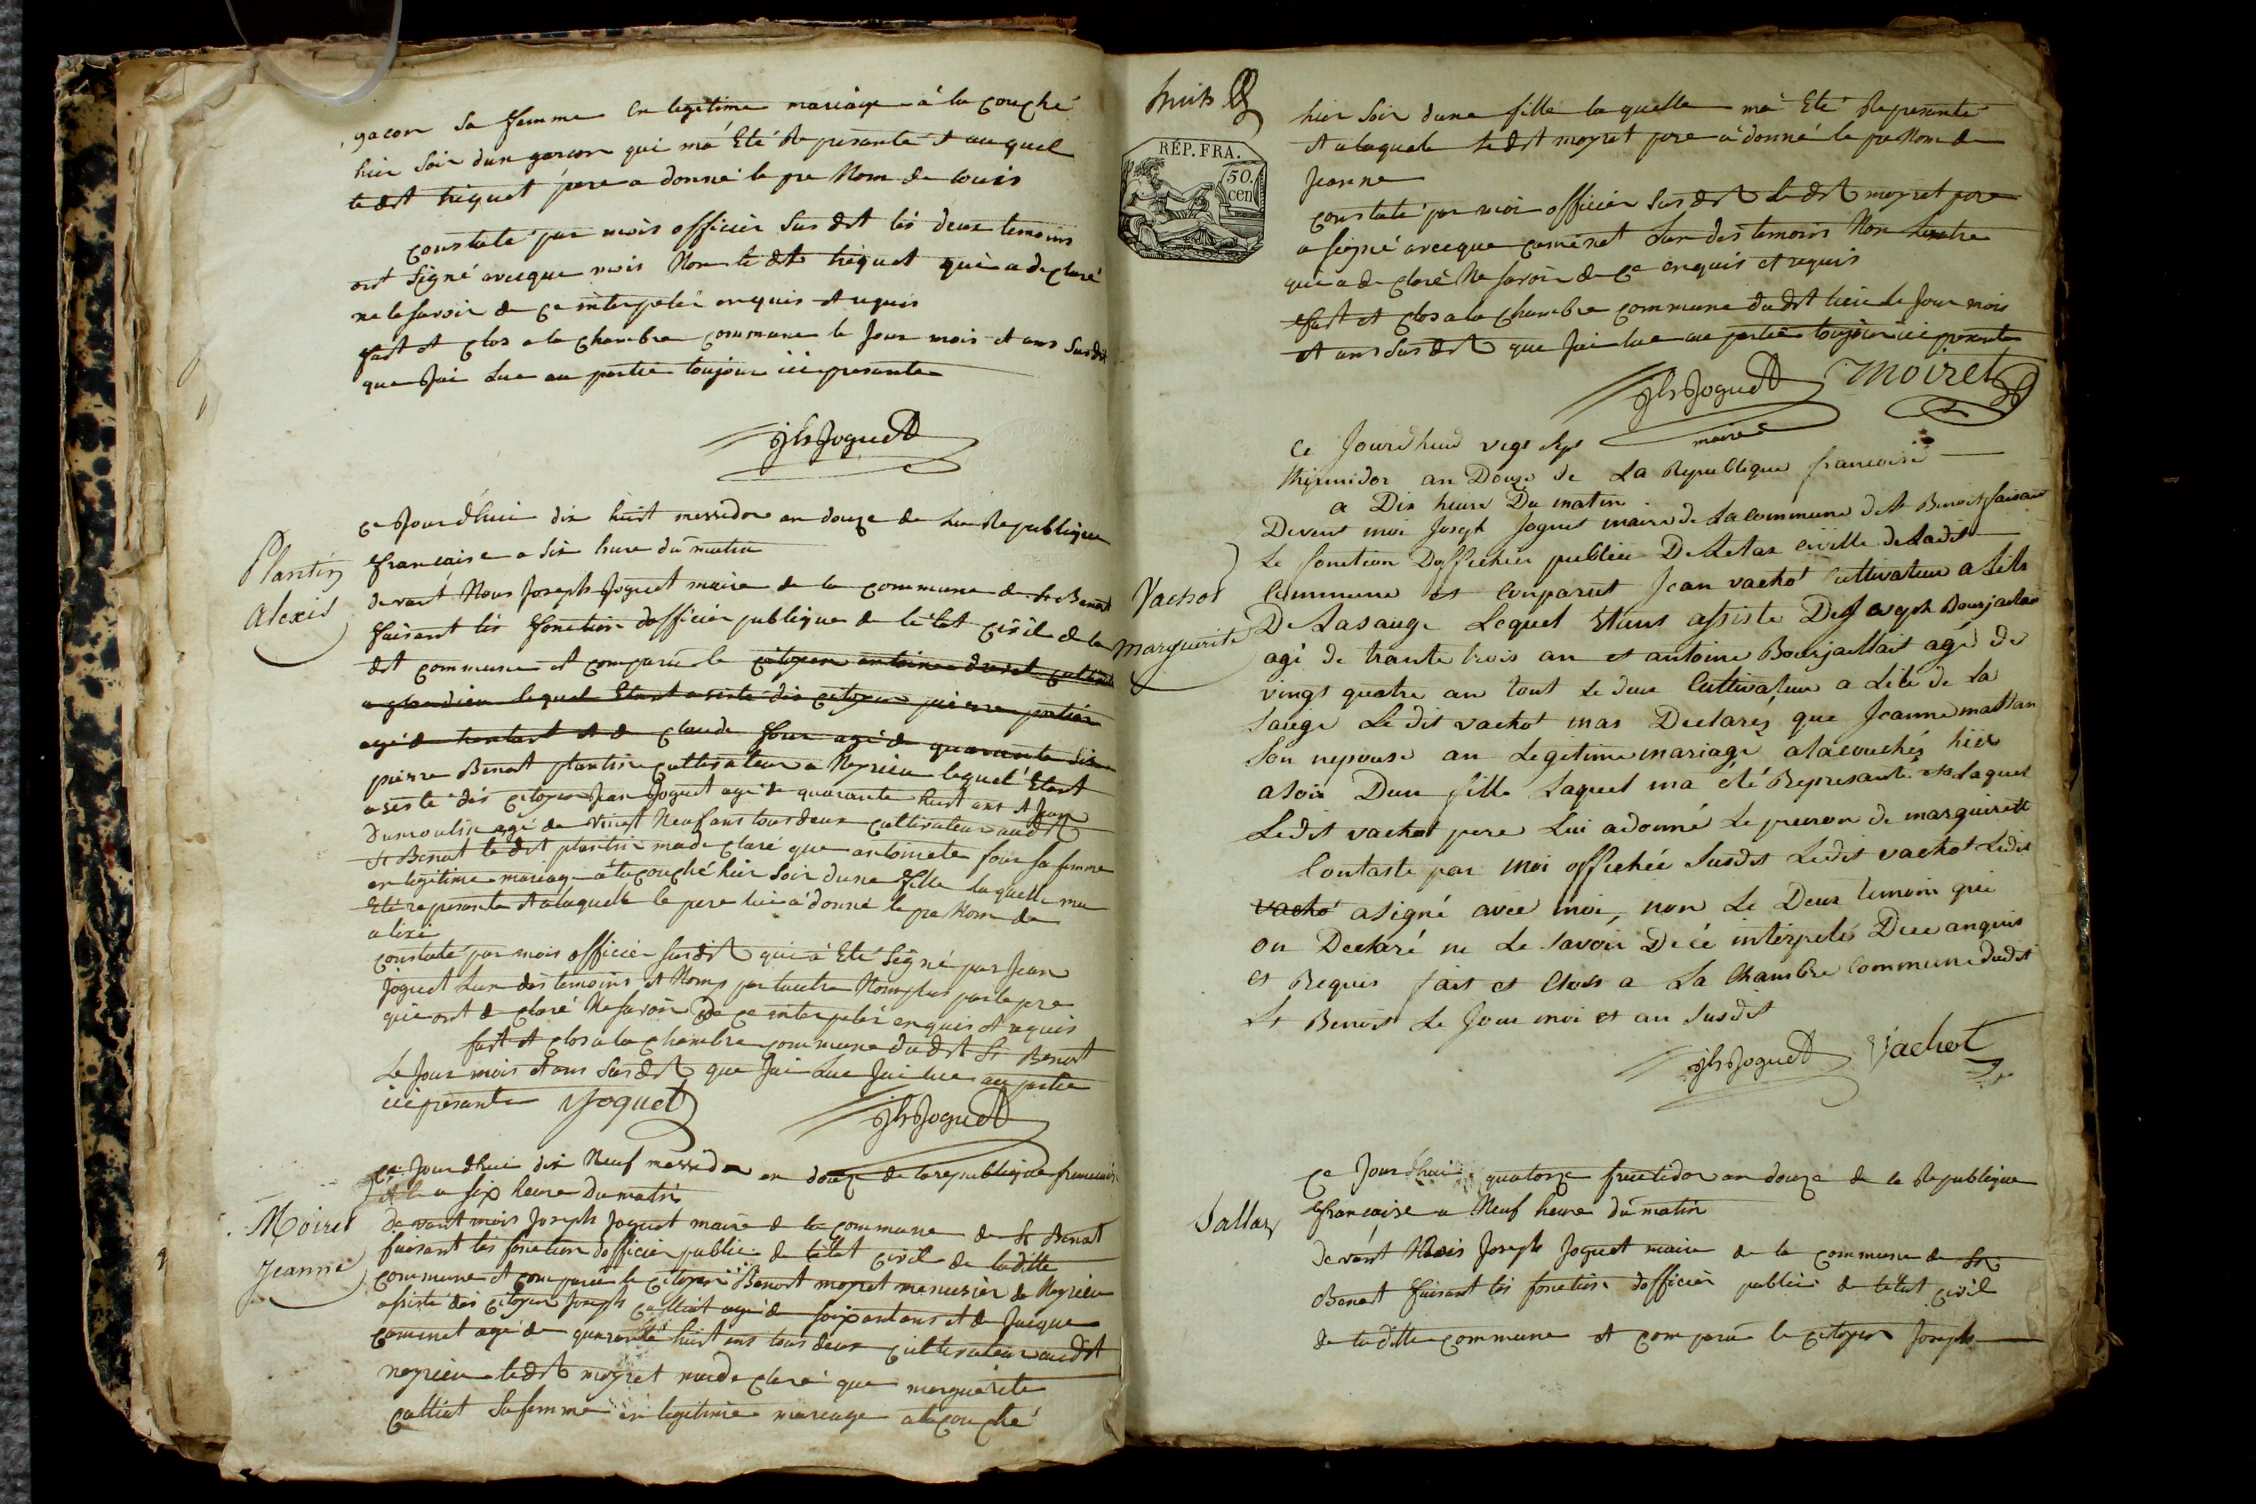 gacon sa femme en legitime mariage a la couché
hier soir dun garcon qui má Eté Represanté et auquel
ledit triquet pere a donné le pre Nom de louis
constaté par mois officier susdit les deux temoins
ont signé avecque mois Non ledit triquet qui a declaré
ne le savoir de ce interpelé enquis et requis
fait et clos a la chambre commune le Jour mois et ans susdit
que Jai Lue au partie toujour ici presante
jh Joguet
Plantin
Alexis
ce Jourdhui dix huit messidor an douze de La Republique
francaise a six heure du matin
devant Nous Joseph Joguet maire de la commune de St Benoit
faisant les fonction dofficier publique de létat civile de la
dit commune et comparu le citoyen antoine
lequel Etant asisté des citoyen pierre
agé de et de claude four agé de quarante six
pierre Benoit plantin cultivateur a Neyrieu lequel Etant
asisté des citoyen Jean Joguet agé de quarante huit ans et Jean
Dumoulin agé de vincst Neuf ans tous deux cultivateur audit
St Benoit le dit plantin ma declaré que antoinete four sa femme
en legitime mariage a la couché hier soir dune fille laquelle ma
Eté represanté et a laquelle le pere lui a donné le pre Nom de
alexi
constaté par mois officier susdit qui a Eté Signé par Jean
Joguet Lun des temoins et Nomps par lautre Nomplus par le pere
qui ont declaré Ne savoir De ce interpeler enquis et requis
fait et clos a la chambre commune dudit St Benoit
Le Jour mois et ans susdit que Jai Lue Jai lue au partie
ici presante Joguet jh Joguet
Moiret
Jeanne
ce Jourdhui dix Neuf messidor an douze de la republique francaise
a six heure Du matin
devant mois Joseph Joguet maire de la commune de St Benoit
faisant les fonction dofficier public de létat civil de ladite
commune et comparu le citoyen Benoit moyret menusier de Neyrieu
assisté des citoyen Joseph calliat agé de soixant ans et de Jacque
cominet agé de quarante huit ans tous deux cultivateur audit
neyrieu ledit moyret ma declaré que marguerite
calliat sa femme en legitime mariage a la couché
huit
RÉP. FRA.
50.
cen
hier soir dune fille laquelle má Eté Represanté
et a laquele ledit moyret pere a donné le pre Nom de
Jeanne
constaté par moi officier susdit ledit moyret pere
a signé avecque cominet Lun des temoins Non Lautre
qui a declaré Ne savoir de ce enquis et requis
fait et clos a la chambre commune dudit lieu Le Jour mois
et ans susdit que Jai lue au partie toujour ici presante
jh Joguet Moiret
maire
Vachot
Marguerite
Ce Jourdhui vigt sept
thermidor an Douze de La Republique francoise
a Dix heure Du matin
Devent moi Joseph Joguet maire de La commune de St Benoit faisant
Le fonction Doffichier publice De Letat civille de Ladit
Commune et Comparut Jean vachot Cultivateur a
De Lasauge Lequel Etant assisté De Joseph Bourjaillat
agé de trante trois an et antoine Bourjaillait agé de
vingt quatre an tout Le deux Cultivateur a de La
sauge Ledit vachot mas Declarés que Jeanne mattan
son nepouse an Legitime mariage a lacouchés hier
a soir Dun fille Laquel ma été Represanté et a Laquel
Ledit vachot pere Lui adonné Le prenon de marguirette
Contasté par moi offichié susdit Ledit vachot Ledit
vachó asigné avec moi, non Le Deux temoin qui
on Declaré ne Le savoir De cé interpelés Dece anquis
et Requis fait et Clos a La Chambre Commune dudit
St Benoit Le Jour moi et an susdit
jh Joguet Vachot
Sallaz
ce Jourdhui quatorze fructidor an douze de la Republique
francaise a Neuf heure du matin
devant Mois Joseph Joguet maire de la commune de St
Benoit faisant les fonction dofficier public de létat civil
de ladite commune et comparu le citoyen Joseph